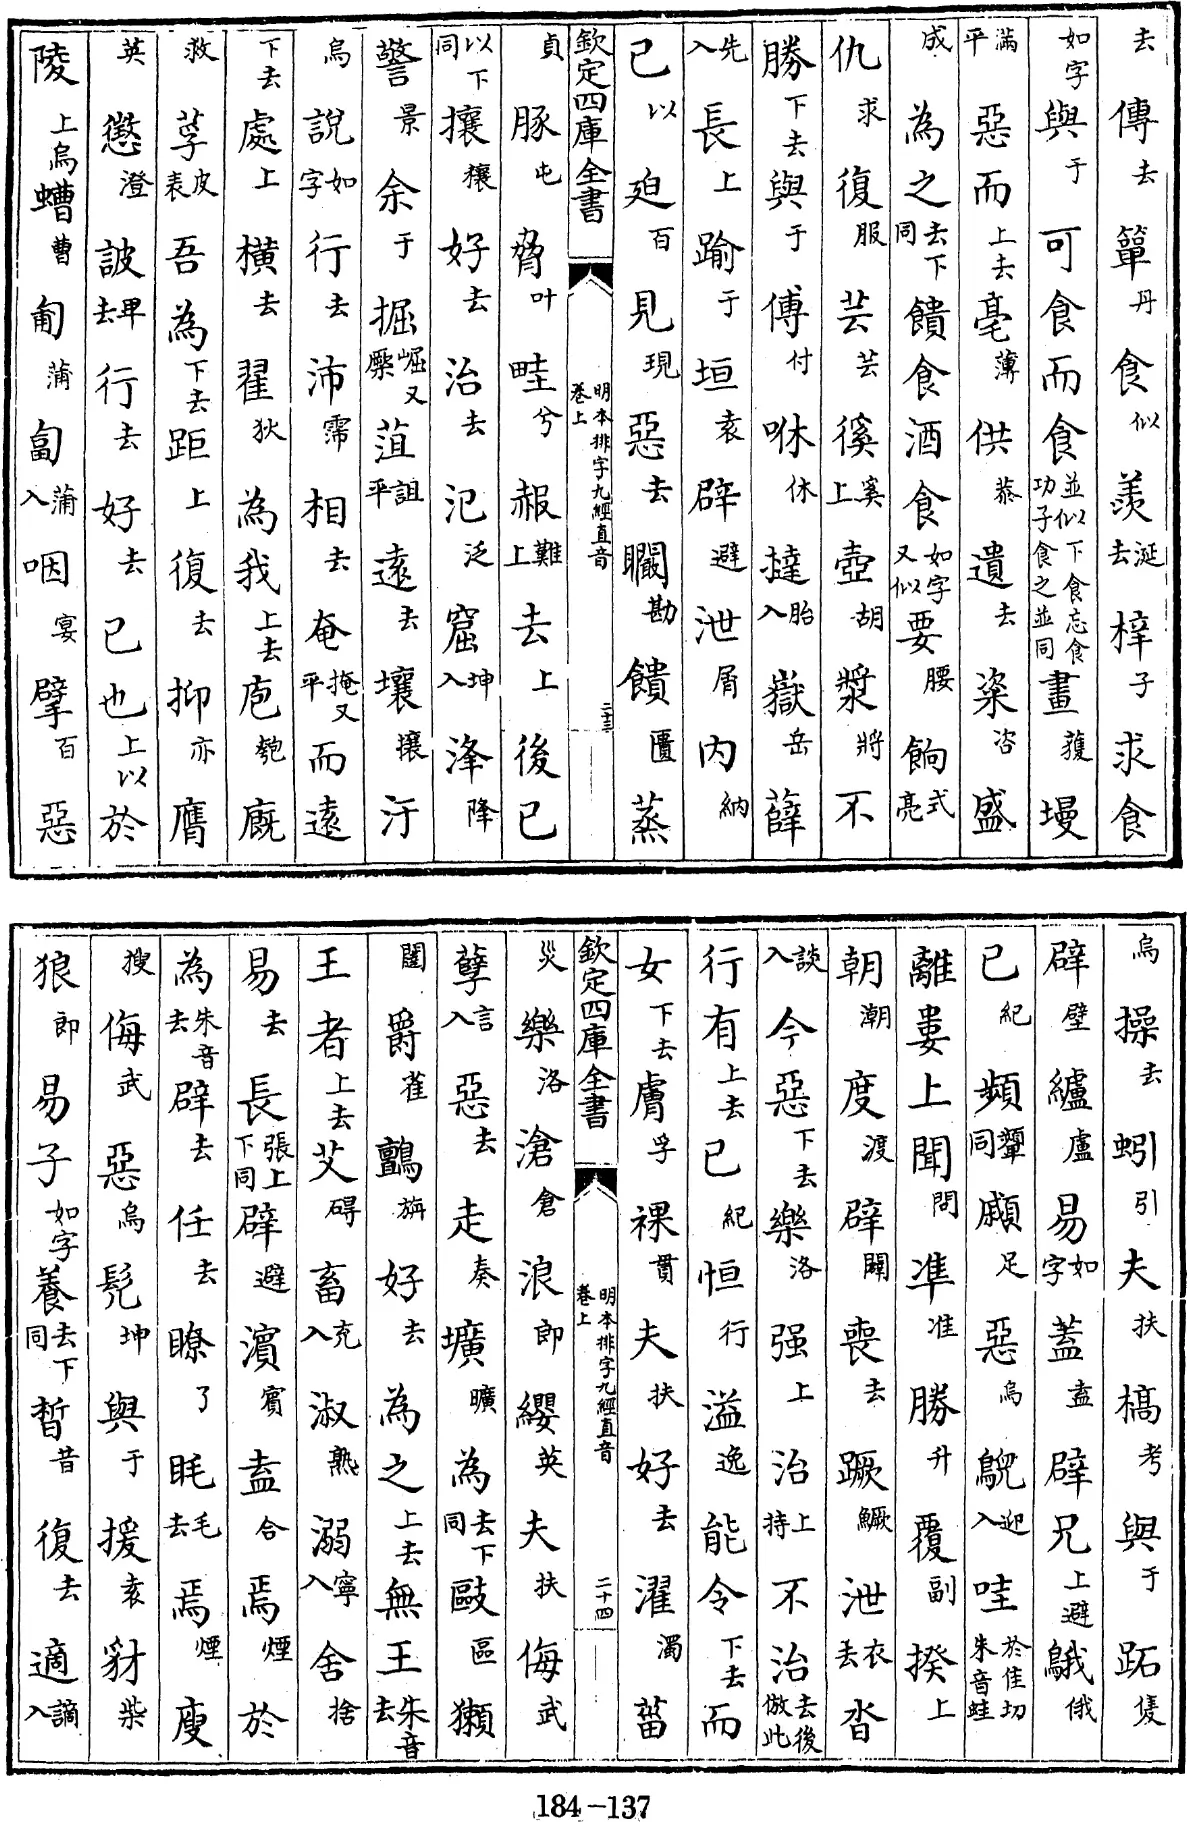 去傳去簞丹食似羨涎去梓子求食
如字與于可食而食並似下食忘食功子食之並同畫獲墁
滿平惡而上去亳薄供恭遺去粢咨盛
成為之去下同饋食酒食如字又似要腰餉式亮
仇求復服芸芸徯奚上壺胡漿將不
勝下去與于傅付咻休撻胎入嶽岳薛
先入長上踰于垣袁辟避泄屑內納
已以迫百見現惡去矙勘饋匱蒸
欽定四庫全書 明本排字九經直音卷上 二十三
貞豚屯脅叶畦兮赧難上去上後已
以下同攘穰好去治去氾泛窟坤入洚降
警景余于掘崛又㮾菹詛平遠去壤攘汙
烏說如字行去沛霈相去奄掩又平而遠
下去處上橫去翟狄為我上去庖匏廐
救莩皮表吾為下去距上復去抑亦膺
英懲澄詖卑去行去好去已也上以於
陵上烏螬曹匍蒲匐蒲入咽宴擘百惡
烏操去蚓引夫扶槁考與于跖隻
辟壁纑盧易如字蓋盍辟兄上避鵝俄
已紀頻顰同顣足惡烏鶃迎入哇於佳切朱音蛙
離婁上聞問準准勝升覆副揆上
朝潮度渡辟闢喪去蹶鱖泄衣去沓
談入今惡下去樂洛强上治上持不治去後倣此
行有上去已紀恒行溢逸能令下去而
女下去膚孚祼貫夫扶好去濯濁菑
欽定四庫全書 明本排字九經直音卷上 二十四
災樂洛滄倉浪郎纓英夫扶侮武
孽言入惡去走奏壙曠為去下同敺區獺
闥爵雀鸇旃好去為之上去無王朱音去
王者上去艾碍畜充入淑熟溺寧入舍捨
易去長張上下同辟避濱賓盍合焉煙於
為朱音去辟去任去瞭了眊毛去焉煙廋
搜侮武惡烏髡坤與于援袁豺柴
狼郎易子如字養去下同晳昔復去適謫入
184-137